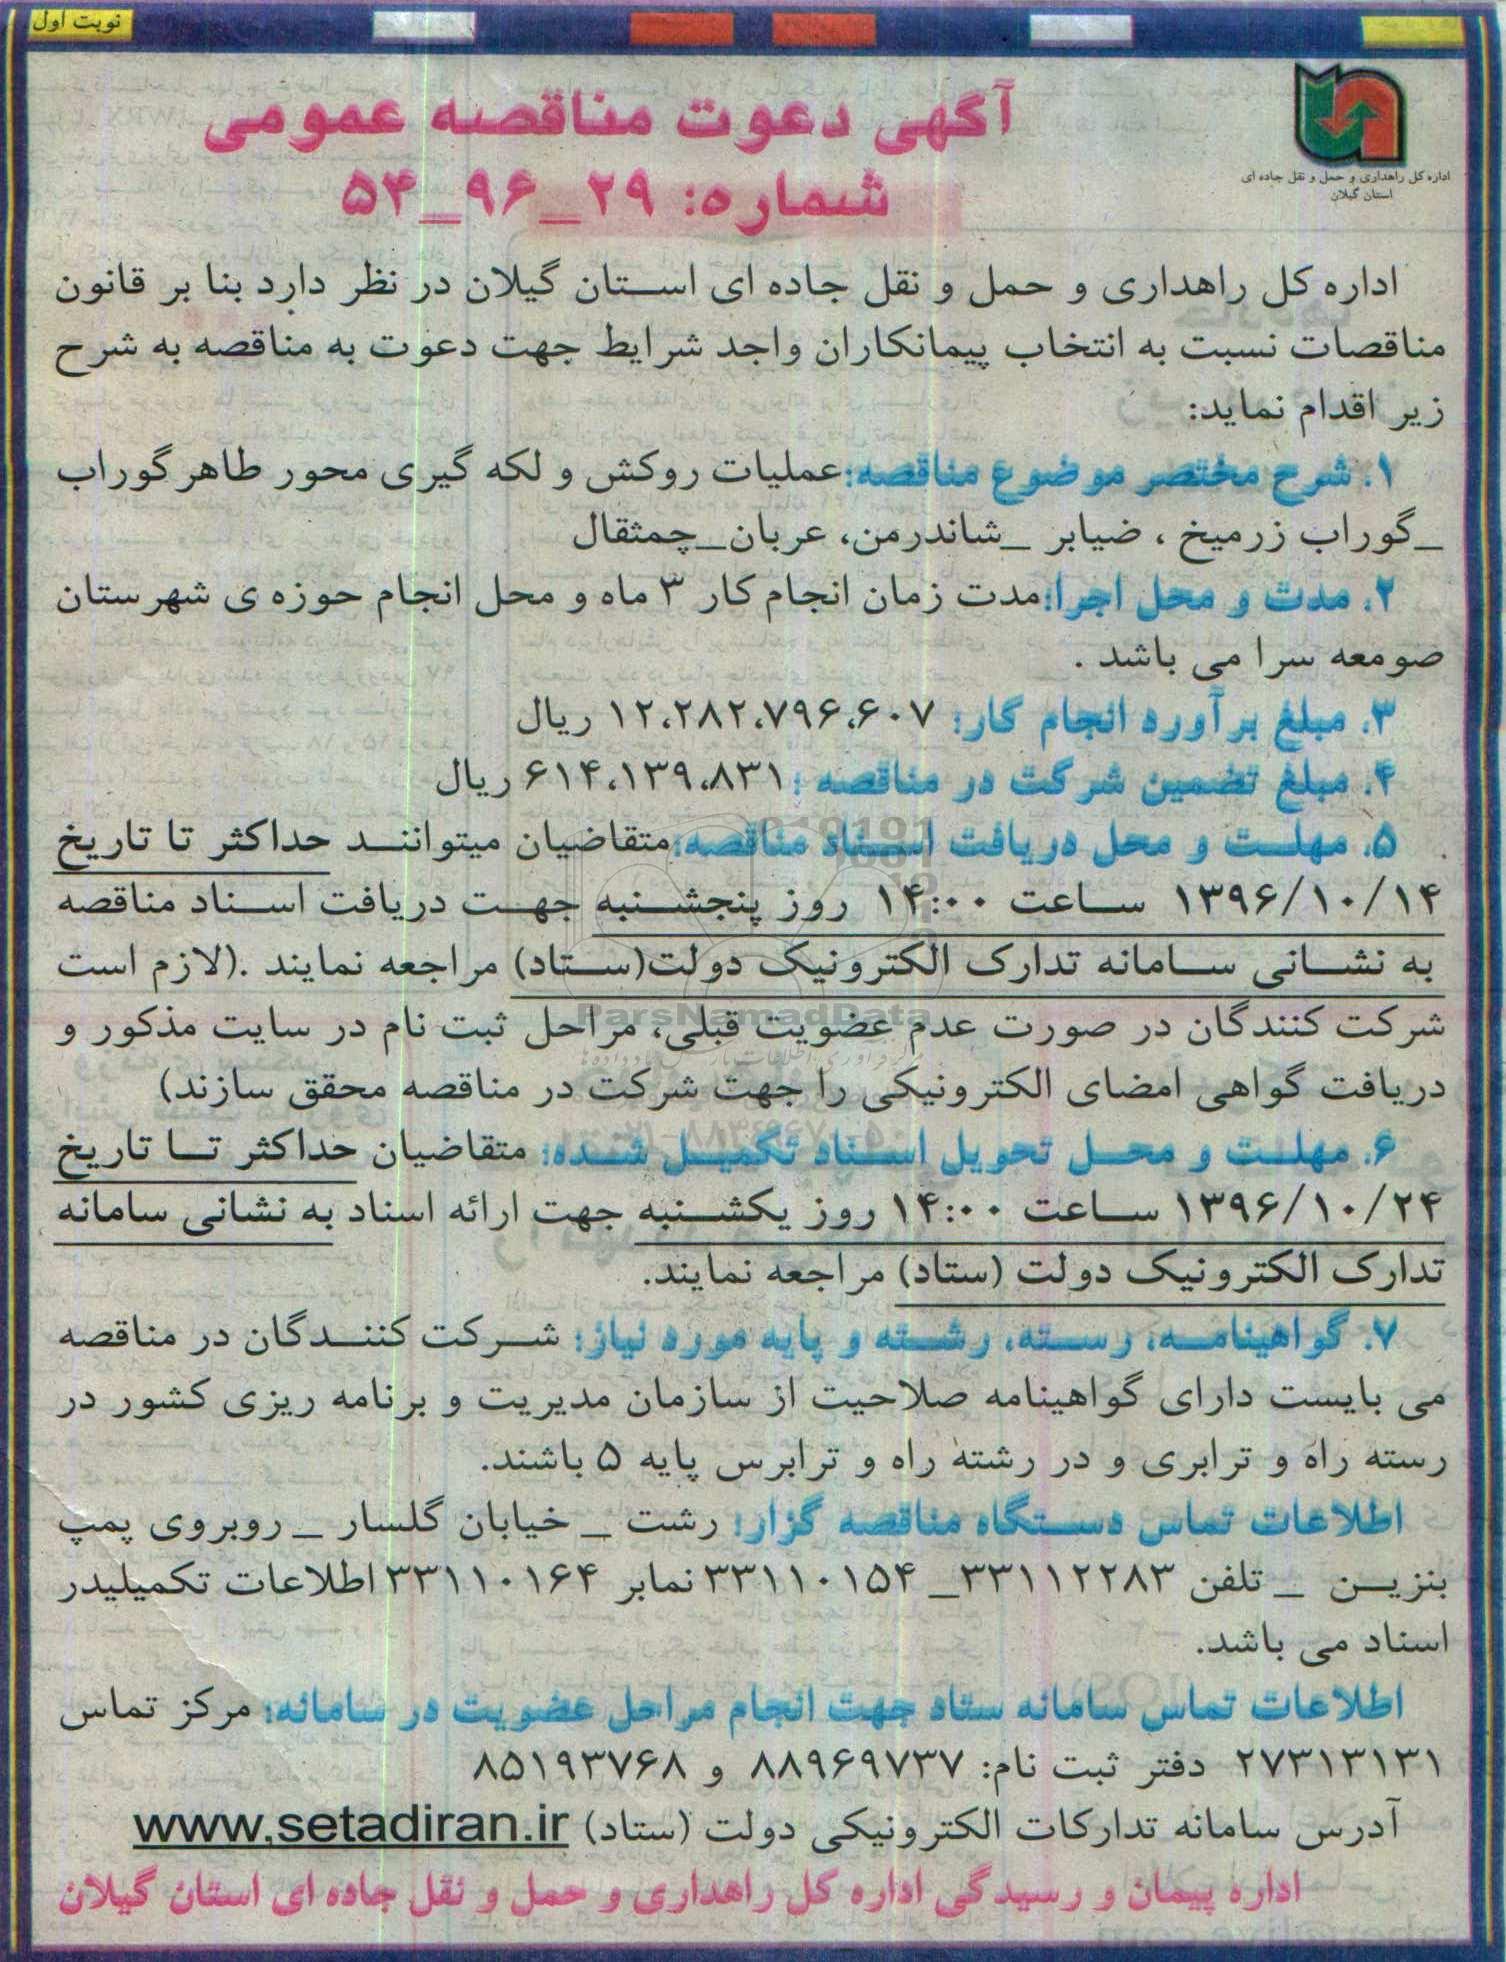 نوبت اول
اداره کل راهداری و حمل و نقل جاده ای
استان گیلان
آگهی دعوت مناقصه عمومی
شماره: ۲۹_۹۶_۵۴
اداره کل راهداری و حمل و نقل جاده ای استان گیلان در نظر دارد بنا بر قانون
مناقصات نسبت به انتخاب پیمانکاران واجد شرایط جهت دعوت به مناقصه به شرح
زیر اقدام نماید:
۱. شرح مختصر موضوع مناقصه: عملیات روکش و لکه گیری محور طاهرگوراب
_گوراب زرمیخ ، ضیابر _شاندرمن، عربان_چمثقال
۲. مدت و محل اجرا: مدت زمان انجام کار ۳ ماه و محل انجام حوزه ی شهرستان
صومعه سرا می باشد .
۳. مبلغ برآورد انجام کار: ۱۲،۲۸۲،۷۹۶،۶۰۷ ریال
۴. مبلغ تضمین شرکت در مناقصه : ۶۱۴،۱۳۹،۸۳۱ ریال
۵. مهلت و محل دریافت اسناد مناقصه: متقاضیان میتوانند حداکثر تا تاریخ
۱۳۹۶/۱۰/۱۴ ساعت ۱۴:۰۰ روز پنجشنبه جهت دریافت اسناد مناقصه
به نشانی سامانه تدارک الکترونیک دولت(ستاد) مراجعه نمایند .(لازم است
شرکت کنندگان در صورت عدم عضویت قبلی، مراحل ثبت نام در سایت مذکور و
دریافت گواهی امضای الکترونیکی را جهت شرکت در مناقصه محقق سازند)
۶. مهلت و محل تحویل اسناد تکمیل شده: متقاضیان حداکثر تا تاریخ
۱۳۹۶/۱۰/۲۴ ساعت ۱۴:۰۰ روز یکشنبه جهت ارائه اسناد به نشانی سامانه
تدارک الکترونیک دولت (ستاد) مراجعه نمایند.
۷. گواهینامه، رسته، رشته و پایه مورد نیاز: شرکت کنندگان در مناقصه
می بایست دارای گواهینامه صلاحیت از سازمان مدیریت و برنامه ریزی کشور در
رسته راه و ترابری و در رشته راه و ترابرس پایه ۵ باشند.
اطلاعات تماس دستگاه مناقصه گزار: رشت _ خیابان گلسار _ روبروی پمپ
بنزین _ تلفن ۳۳۱۱۲۲۸۳_ ۳۳۱۱۰۱۵۴ نمابر ۳۳۱۱۰۱۶۴ اطلاعات تکمیلیدر
اسناد می باشد.
اطلاعات تماس سامانه ستاد جهت انجام مراحل عضویت در سامانه: مرکز تماس
۲۷۳۱۳۱۳۱ دفتر ثبت نام: ۸۸۹۶۹۷۳۷ و ۸۵۱۹۳۷۶۸
آدرس سامانه تدارکات الکترونیکی دولت (ستاد) www.setadiran.ir
اداره پیمان و رسیدگی اداره کل راهداری و حمل و نقل جاده ای استان گیلان
ParsNamadData